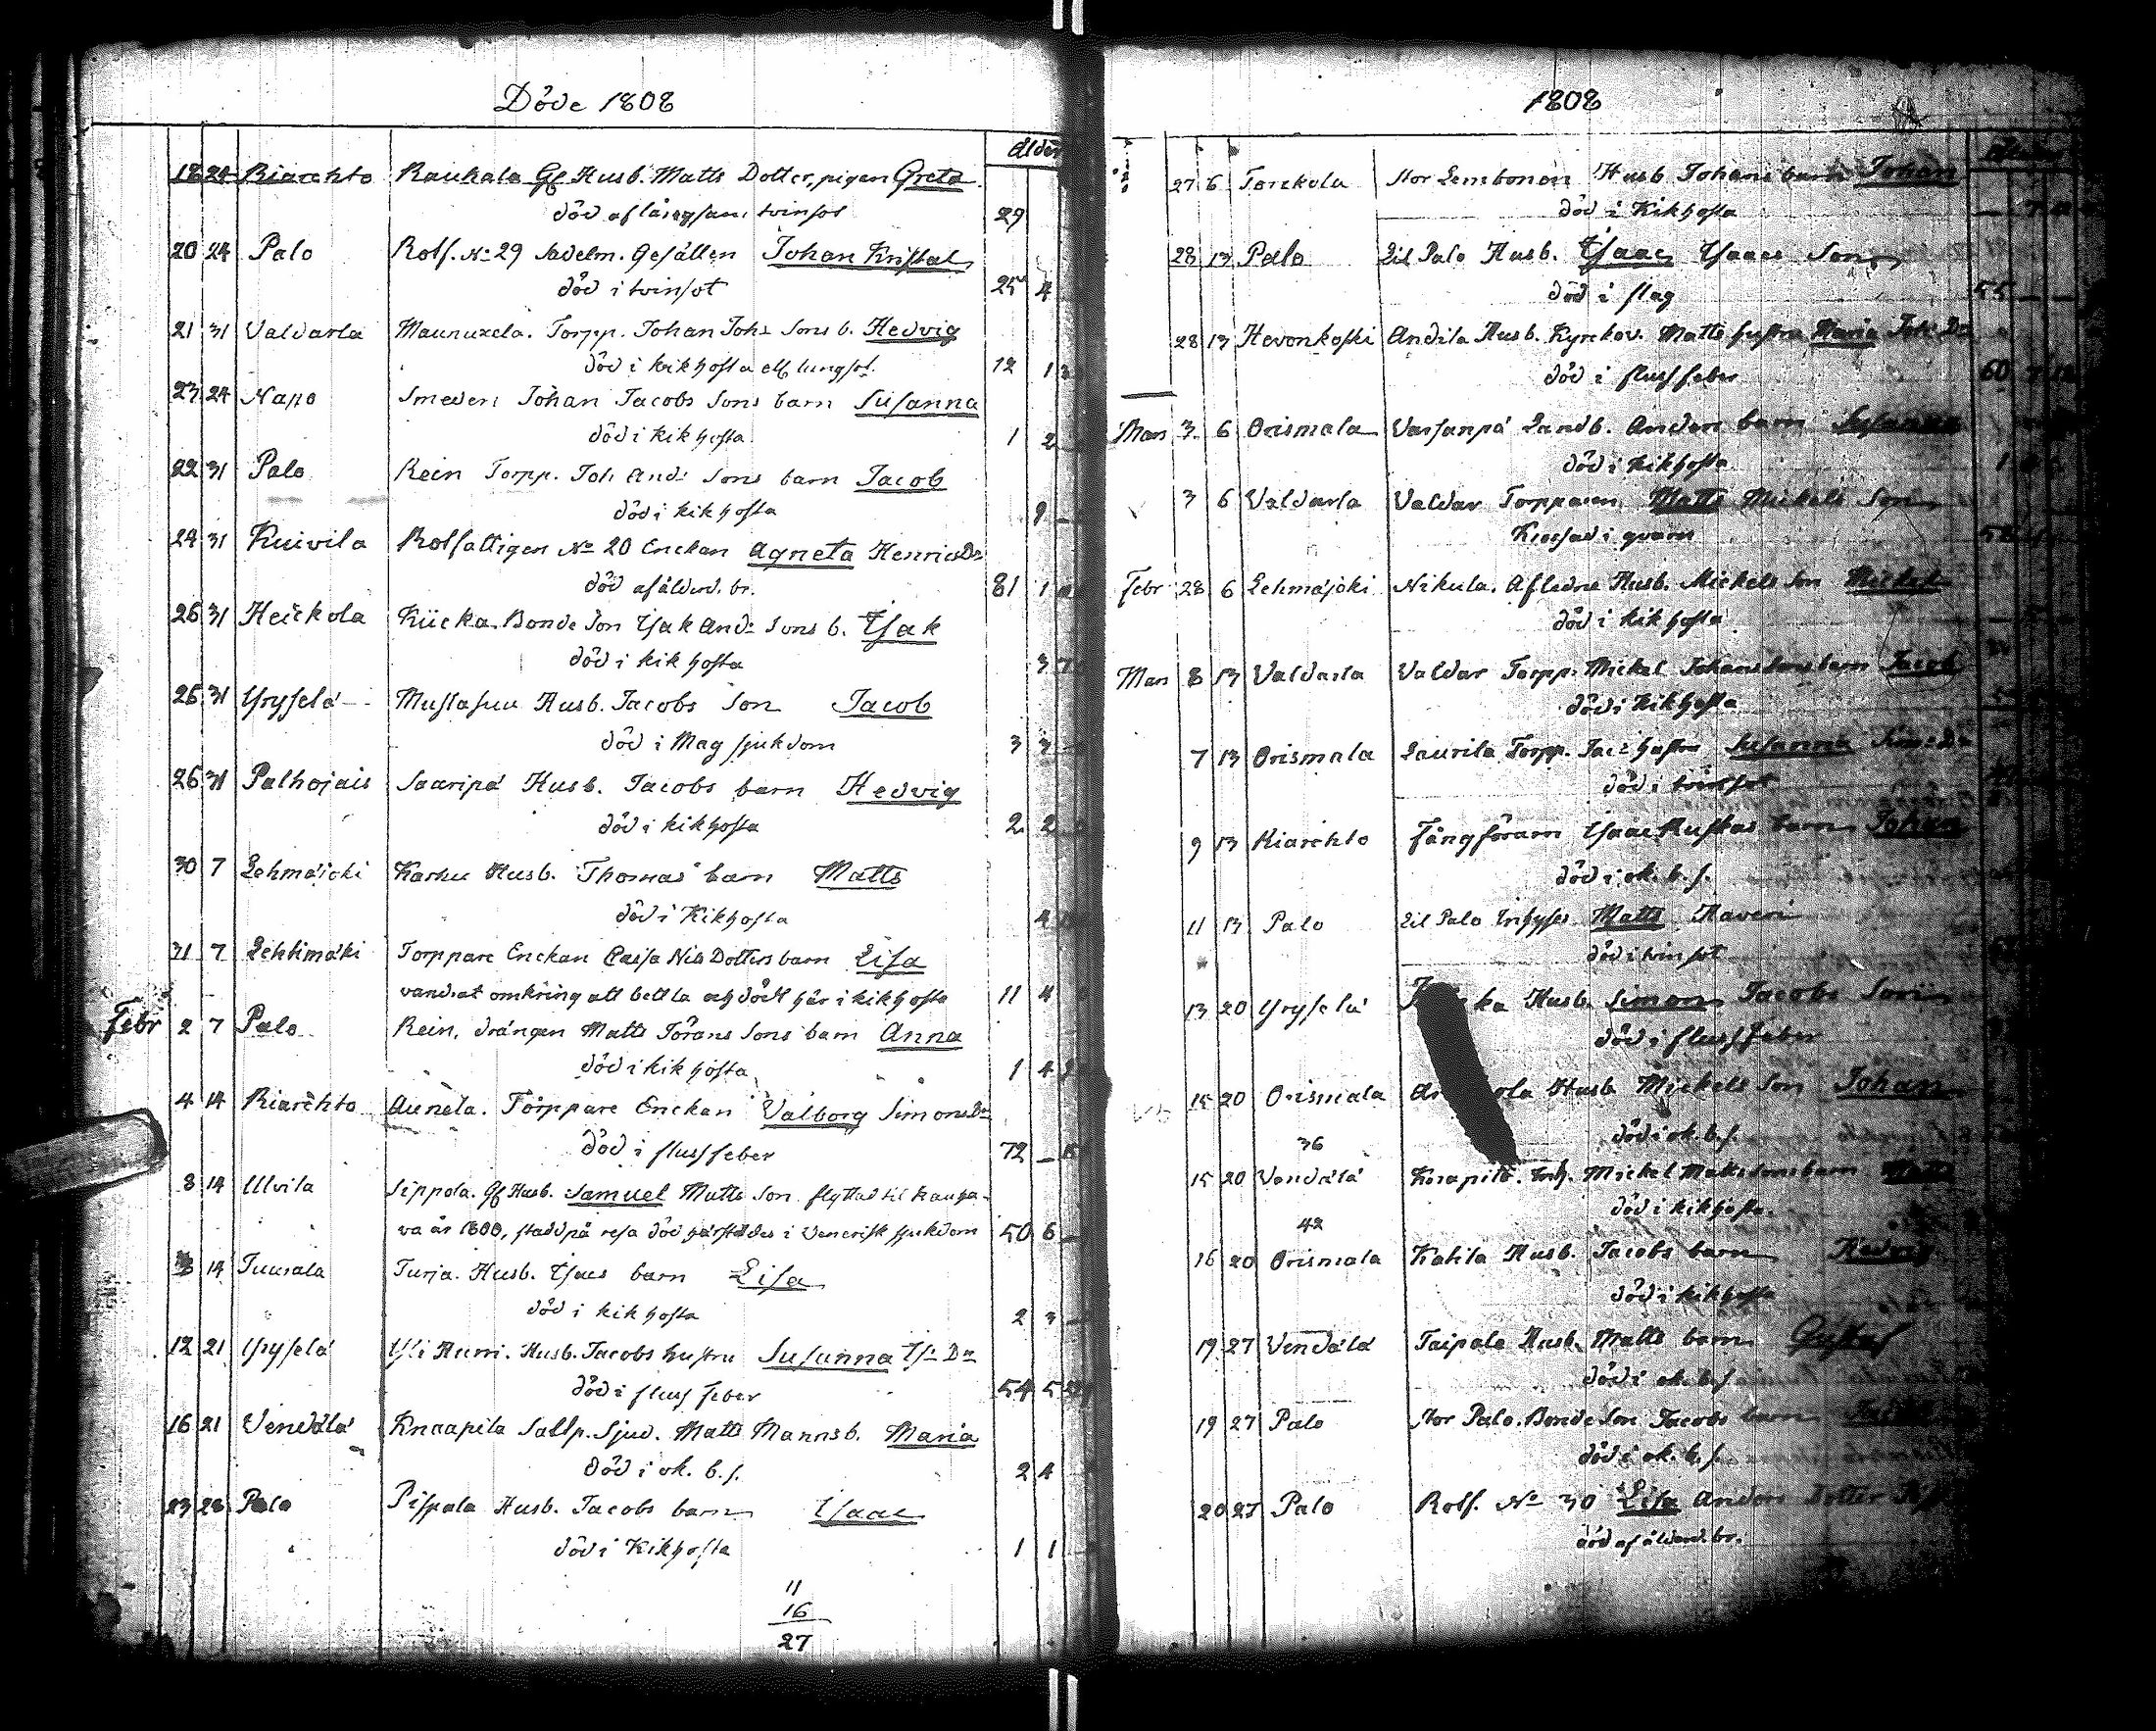 Döde 1808
ålder
18 24 Kiarehto Raukala Gf Husb. Matts Dotter, pigan Greta
död af långsam tvinsot 29
20 24 Palo Rotf. No 29 Sadelm. Gesällen Johan Kristal
död i tvinsot 25 4
21 31 Valdarla Maunuxela. Torpp. Johan Johs Sons b. Hedvig
död i kikhosta ell lungsot. 12 1
23 24 Napo Smeden Johan Jacobs Sons barn Susanna
död i kikhosta 1 2
22 31 Palo Rein Torpp. Joh And: Sons barn Jacob
död i kikhosta 9 –
24 31 Kuivila Rotfattigen No 20 Enckan Agneta Henrics Dr
död af ålderd. br. 81 1
26 31 Heickola Kiicka Bonde Son Isak And: Sons b. Isak
död i kikhosta 3 7
26 31 Yrysselä Mustasuu Husb. Jacobs Son Jacob
död i Mag sjukdom 3 3
26 31 Palhojais Saaripä Husb. Jacobs barn Hedvig
död i kikhosta 2 2
30 7 Lehmäjoki Karhu Husb. Thomas barn Matts
död i Kikhosta 4
31 7 Lehtimäki Torppare Enckan Caisa Nils Dotters barn Lisa
vandrat omkring att bettla och dödt här i kikhosta 11 4
Febr 2 7 Palo Rein, drängen Matts Jörans Sons barn Anna
död i kikhosta 1 4
4 14 Kiarehto Aunela. Torppare Enckan Valborg Simons Dr
död i flussfeber 72 –
8 14 Ulvila Sippola. Gf Husb. Samuel Matts Son flyttad til Kauha-
va år 1800, stadd på resa död härstädes i Venerisk sjukdom 50 6 –
14 Tuurala Turja. Husb. Isacs barn Lisa
död i kikhosta 2 3 –
12 21 Yrysselä Yli Hurri. Husb. Jacobs hustru Susanna Is: Dr
död i fluss feber 54 5
16 21 Vendälä Knaapila Saltp. Sjud. Matts Manns b. Maria
död i ok. b. s. 2 4
23 28 Palo Pispala Husb. Jacobs barn Isaac
död i Kikhosta 1 1
11
16
27
1808
27 6 Torckola Stor Lembonen Husb Johans barn Johan
död i Kikhosta
28 13 Palo Lil Palo Husb. Isaac Isaacs Son
död i slag 55 – –
28 13 Hevonkoski Andila Husb. Kyrckov. Matts hustru Maria Joh: Dr
död i flussfeber 60
Mars 3 6 Orismala Vassanpä Landb. Anders barn Susanna
död i kikhosta 1
3 6 Valdarla Valdar Torpparen Matts Mickels Son
Krossad i qvarn
Febr 28 6 Lehmäjoki Nikula. Afledne Husb. Mickels Son Mickel
död i kikhosta
Mars 8 13 Valdarla Valdar Torpp. Mickel Johans Sons barn Jacob
död i kikhosta
7 13 Orismala Laurila Torpp. Jac: hustru Susanna Sim: Dr
död i tvinsot
9 13 Kiarehto Fångföraren Isaac barn Johan
död i ok. b. s.
11 13 Palo Lil Palo Inhyses Matts Haveri
död i tvinsot
13 20 Yrysselä Husb. Simon Jacobs Son
död i flussfeber
15 20 Orismala Husb Mickels Son Johan
död i ok. b. s.
36
15 20 Vendälä Knapila. Inh. Mickel Matts Sons barn Matts
död i kikhosta.
42
16 20 Orismala Kahila Husb. Jacobs barn Hedvig
död i kikhosta
19 27 Vendälä Taipale Husb. Matts barn Gustaf
död i ok. b. s.
19 27 Palo Stor Palo. Bonde Son Jacobs barn
död i ok. b. s.
20 27 Palo Rotf. No 30 Lisa Anders Dotter
död af ålderd. br.